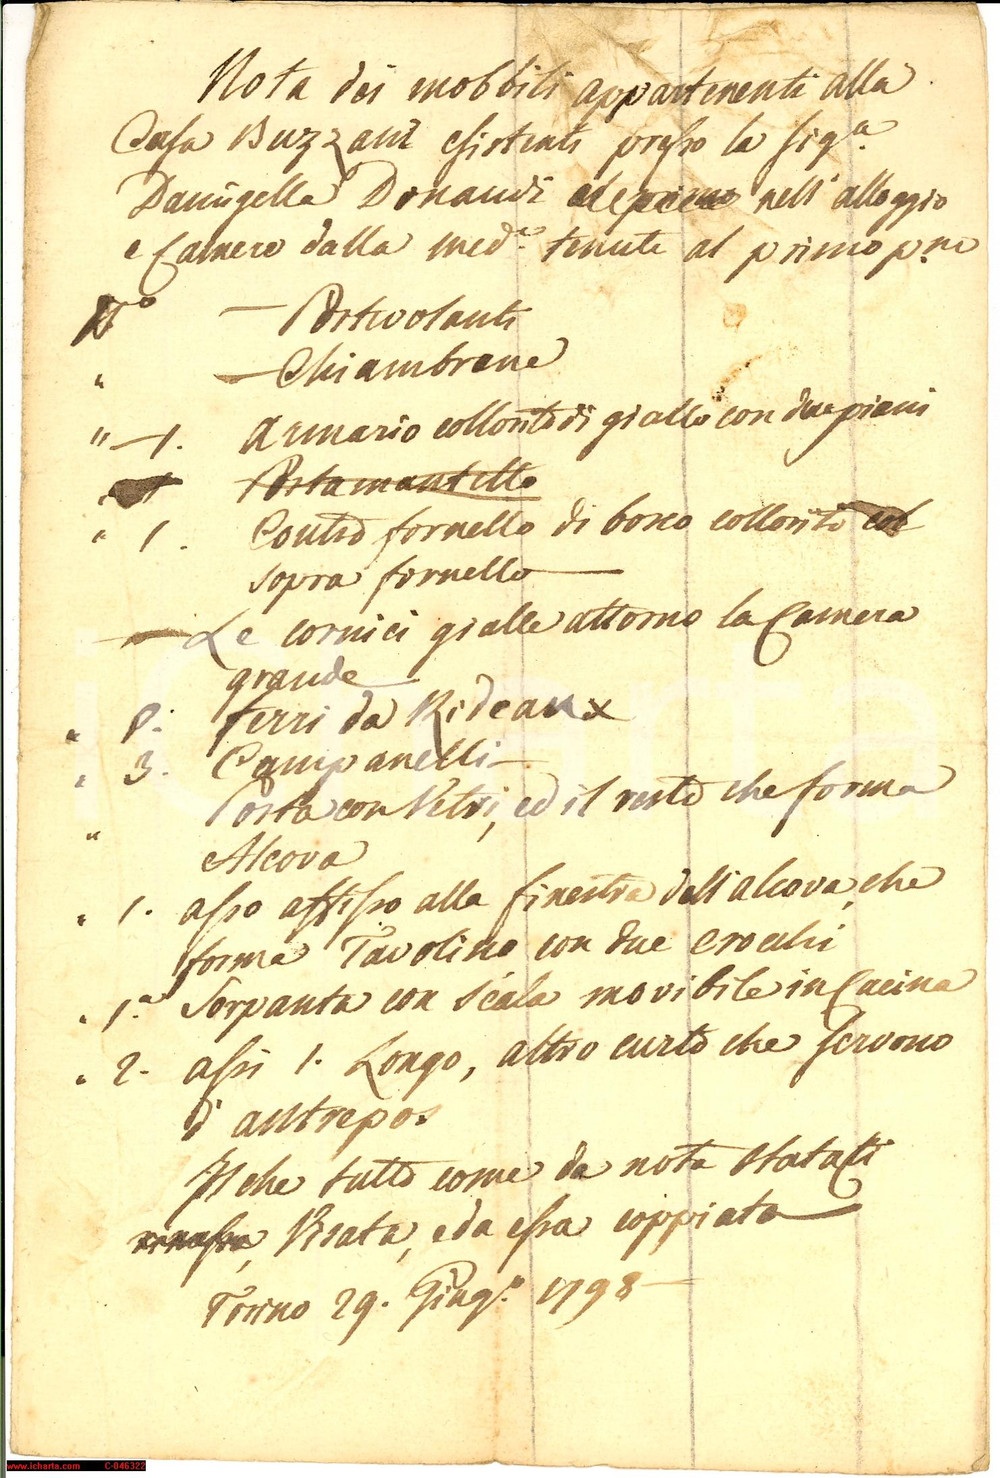 Nota dei mobbili appartenenti alla
Casa Buzzani esistenti presso la Sig.ª
Damigella Donaudi nell' alloggio
e Camere dalla med.ª tenute al primo p.no
N.º — Portivolanti
" — Chiambrane
" — 1. Armario collorito di giallo con due piani
" 1 Portamantello
" 1. Contro fornello di bosco collorito col
sopra fornello —
— Le cornici gialle attorno la Camera
grande —
" 8. ferri da Rideaux
" 3. Campanelli —
" Porta con Vetri, ed il resto che forma
Alcova
" 1. asso affisso alla finestra dell' alcova, che
forma Tavolino con due Crochi
" 1.ª Sorpanta con Scala movibile in Cucina
" 2. assi 1. Longo, altro curto che servono
d' antrepos.
Il che tutto come da nota statati
Visata, e da essa coppiata —
Torino 29. Giug.º 1798 —
www.icharta.com C-046322